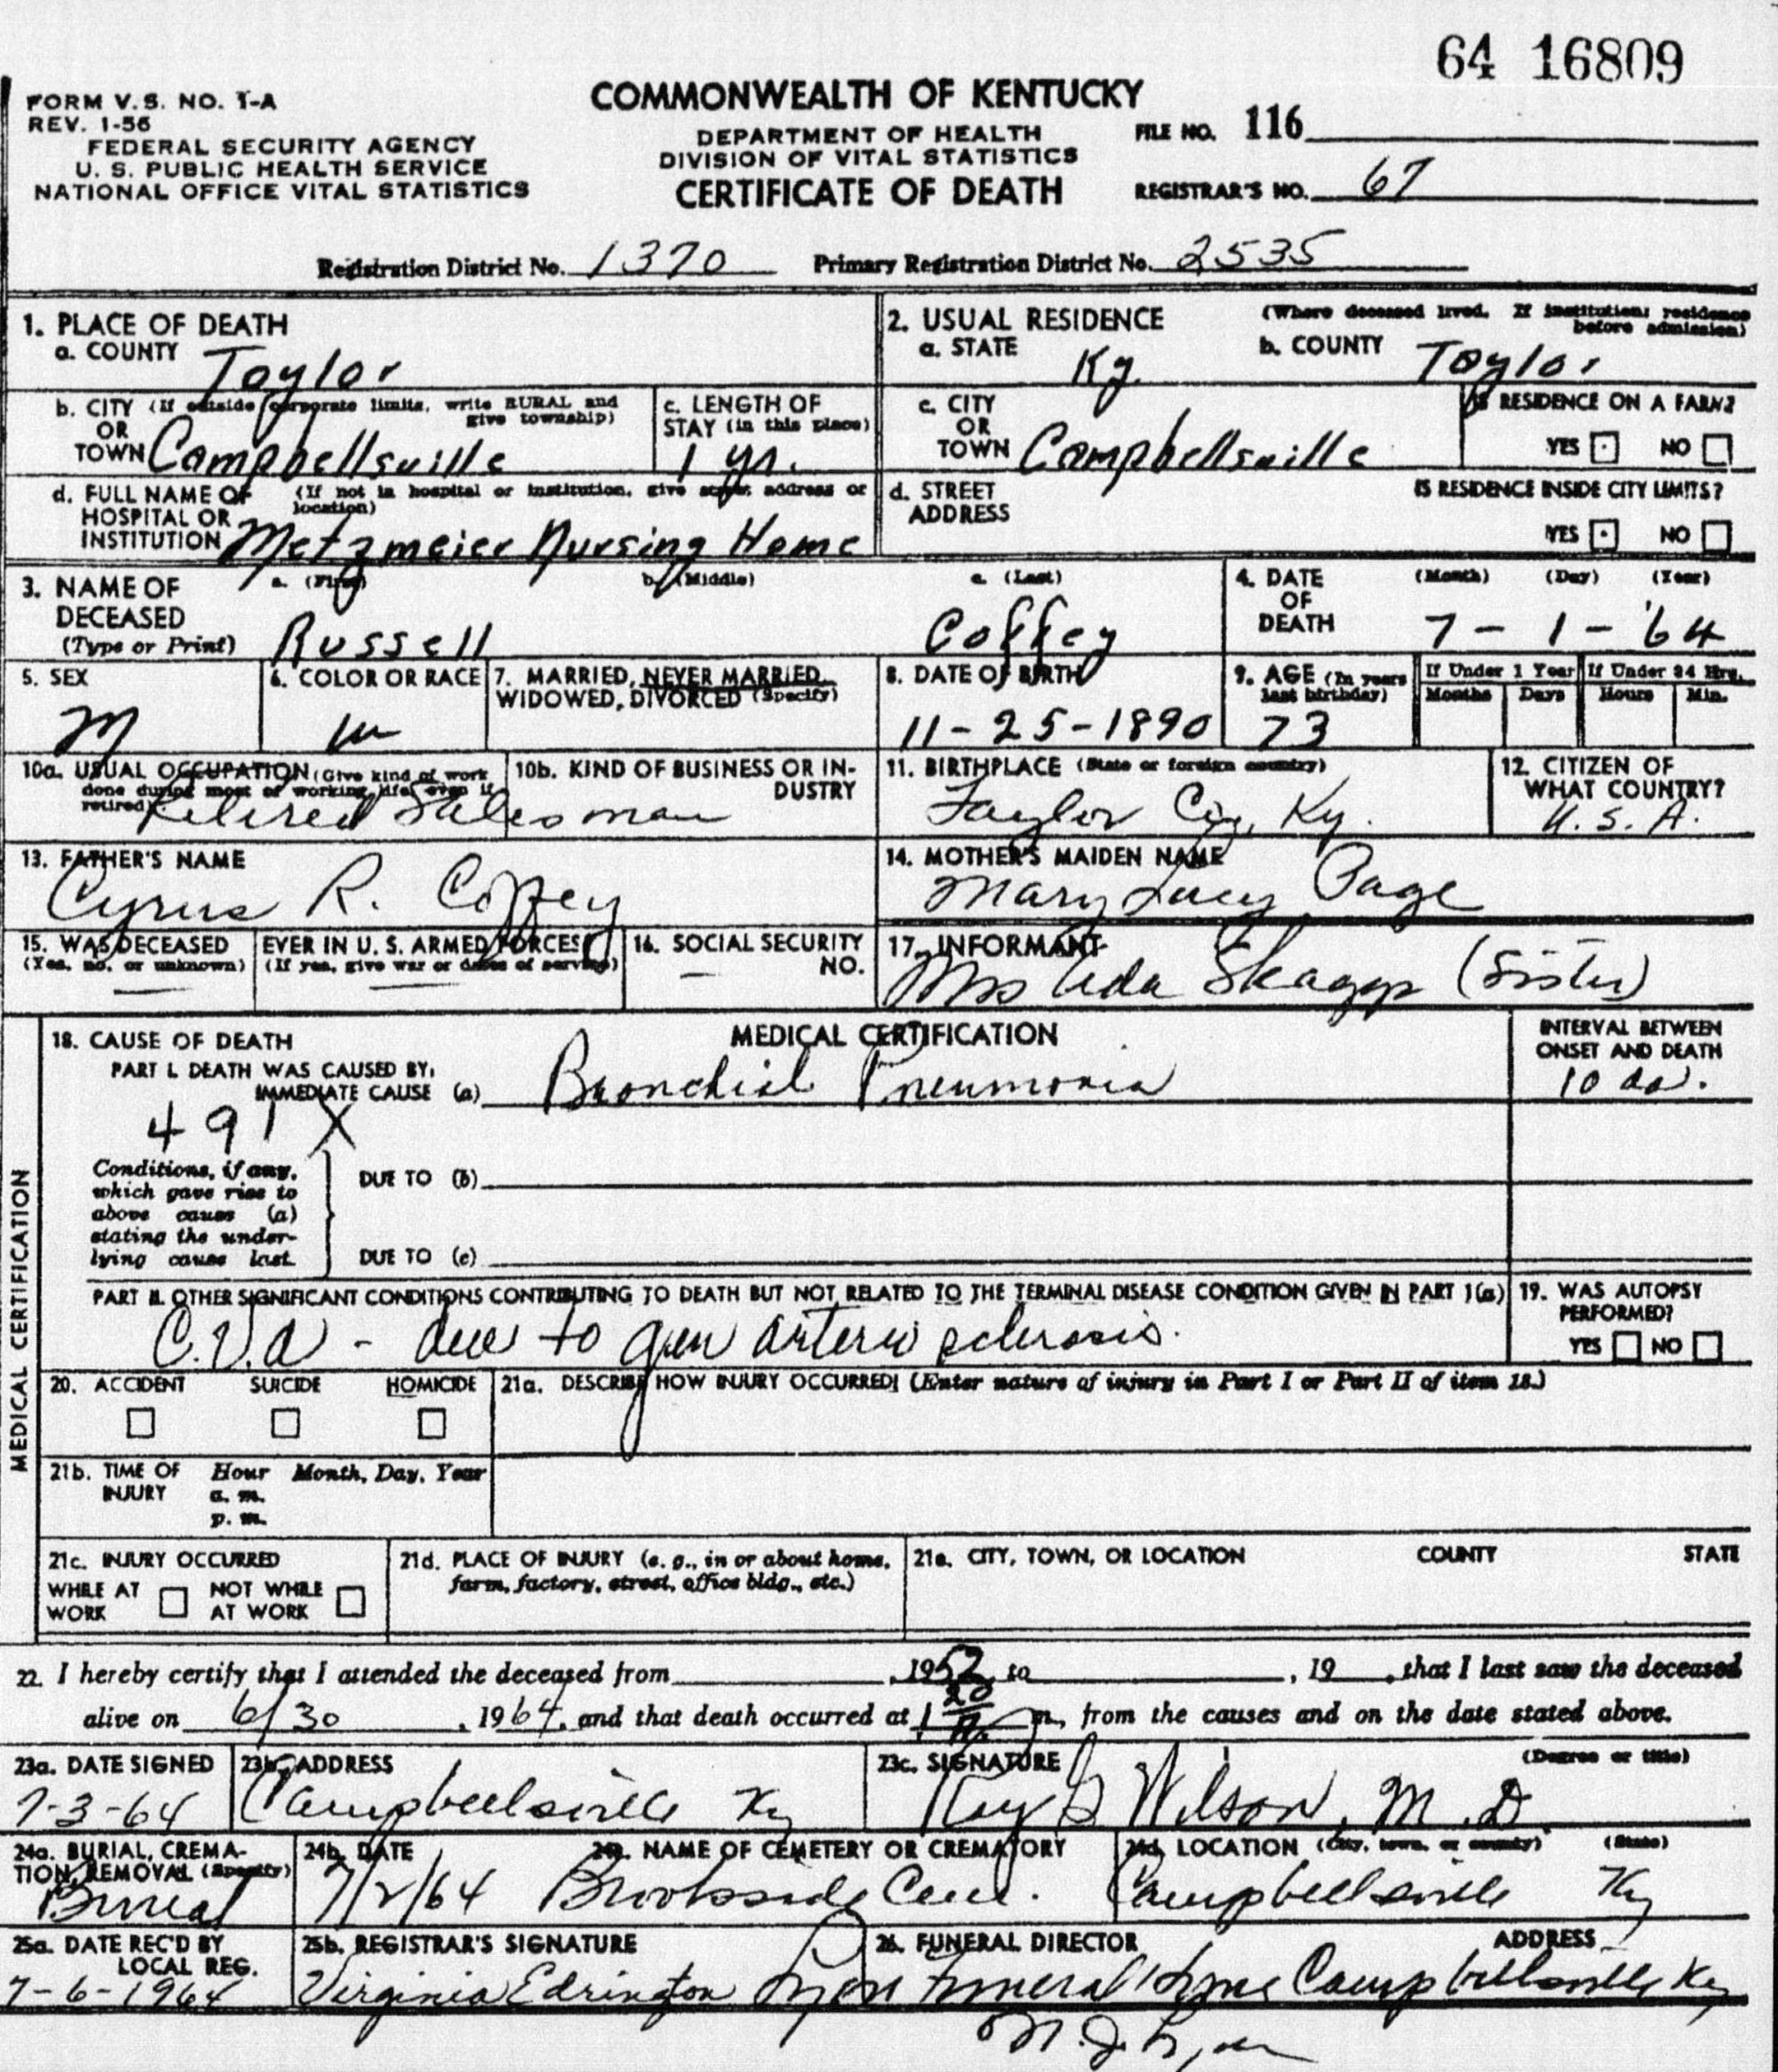 64 16809
FORM V. S. NO. 1-A
REV. 1-56
FEDERAL SECURITY AGENCY
U. S. PUBLIC HEALTH SERVICE
NATIONAL OFFICE VITAL STATISTICS
COMMONWEALTH OF KENTUCKY
DEPARTMENT OF HEALTH
DIVISION OF VITAL STATISTICS
CERTIFICATE OF DEATH
FILE NO. 116
REGISTRAR'S NO. 67
Registration District No. 1370 Primary Registration District No. 2535
1. PLACE OF DEATH
a. COUNTY Taylor
b. CITY (If outside corporate limits, write RURAL and give township)
OR
TOWN Campbellsville
c. LENGTH OF STAY (in this place)
1 yr.
d. FULL NAME OF (If not in hospital or institution, give street address or location)
HOSPITAL OR
INSTITUTION Metzmeier Nursing Home
2. USUAL RESIDENCE (Where deceased lived. If institution: residence before admission)
a. STATE Ky. b. COUNTY Taylor
c. CITY
OR
TOWN Campbellsville
IS RESIDENCE ON A FARM?
YES NO
d. STREET
ADDRESS
IS RESIDENCE INSIDE CITY LIMITS?
YES NO
3. NAME OF
DECEASED
(Type or Print)
a. (First) b. (Middle) c. (Last)
Russell Coffey
4. DATE
OF
DEATH
(Month) (Day) (Year)
7 - 1 - '64
5. SEX
M
6. COLOR OR RACE
W
7. MARRIED, NEVER MARRIED,
WIDOWED, DIVORCED (Specify)
8. DATE OF BIRTH
11-25-1890
9. AGE (In years last birthday)
73
If Under 1 Year If Under 24 Hrs.
Months Days Hours Min.
10a. USUAL OCCUPATION (Give kind of work done during most of working life, even if retired)
Retired Salesman
10b. KIND OF BUSINESS OR INDUSTRY
11. BIRTHPLACE (State or foreign country)
Taylor Co, Ky.
12. CITIZEN OF
WHAT COUNTRY?
U. S. A.
13. FATHER'S NAME
Cyrus R. Coffey
14. MOTHER'S MAIDEN NAME
Mary Lucy Page
15. WAS DECEASED EVER IN U. S. ARMED FORCES?
(Yes, no, or unknown) (If yes, give war or dates of service)
16. SOCIAL SECURITY
NO.
17. INFORMANT
Mrs Ada Skaggs (Sister)
MEDICAL CERTIFICATION
18. CAUSE OF DEATH
MEDICAL CERTIFICATION
INTERVAL BETWEEN
ONSET AND DEATH
PART I. DEATH WAS CAUSED BY:
IMMEDIATE CAUSE (a) Bronchial Pneumonia
10 da.
491 X
Conditions, if any,
which gave rise to
above cause (a)
stating the under-
lying cause last.
DUE TO (b)
DUE TO (c)
PART II. OTHER SIGNIFICANT CONDITIONS CONTRIBUTING TO DEATH BUT NOT RELATED TO THE TERMINAL DISEASE CONDITION GIVEN IN PART I(a)
C.V.A - due to gen arterio sclerosis.
19. WAS AUTOPSY
PERFORMED?
YES NO
20. ACCIDENT SUICIDE HOMICIDE
21a. DESCRIBE HOW INJURY OCCURRED! (Enter nature of injury in Part I or Part II of item 18.)
21b. TIME OF
INJURY
Hour Month, Day, Year
a. m.
p. m.
21c. INJURY OCCURRED
WHILE AT
WORK
NOT WHILE
AT WORK
21d. PLACE OF INJURY (e. g., in or about home,
farm, factory, street, office bldg., etc.)
21e. CITY, TOWN, OR LOCATION COUNTY STATE
22. I hereby certify that I attended the deceased from , 1952, to , 19 , that I last saw the deceased
alive on 6/30 , 1964, and that death occurred at 1 20 m., from the causes and on the date stated above.
23a. DATE SIGNED
7-3-64
23b. ADDRESS
Campbellsville Ky
23c. SIGNATURE (Degree or title)
Wilson, M.D
24a. BURIAL, CREMA-
TION, REMOVAL (Specify)
Burial
24b. DATE
7/2/64
24c. NAME OF CEMETERY OR CREMATORY
Brookside Cem.
24d. LOCATION (City, town, or county) (State)
Campbellsville Ky
25a. DATE REC'D BY
LOCAL REG.
7-6-1964
25b. REGISTRAR'S SIGNATURE
Virginia Edrington
26. FUNERAL DIRECTOR ADDRESS
Lyon Funeral Home Campbellsville Ky
M. J. Lyon